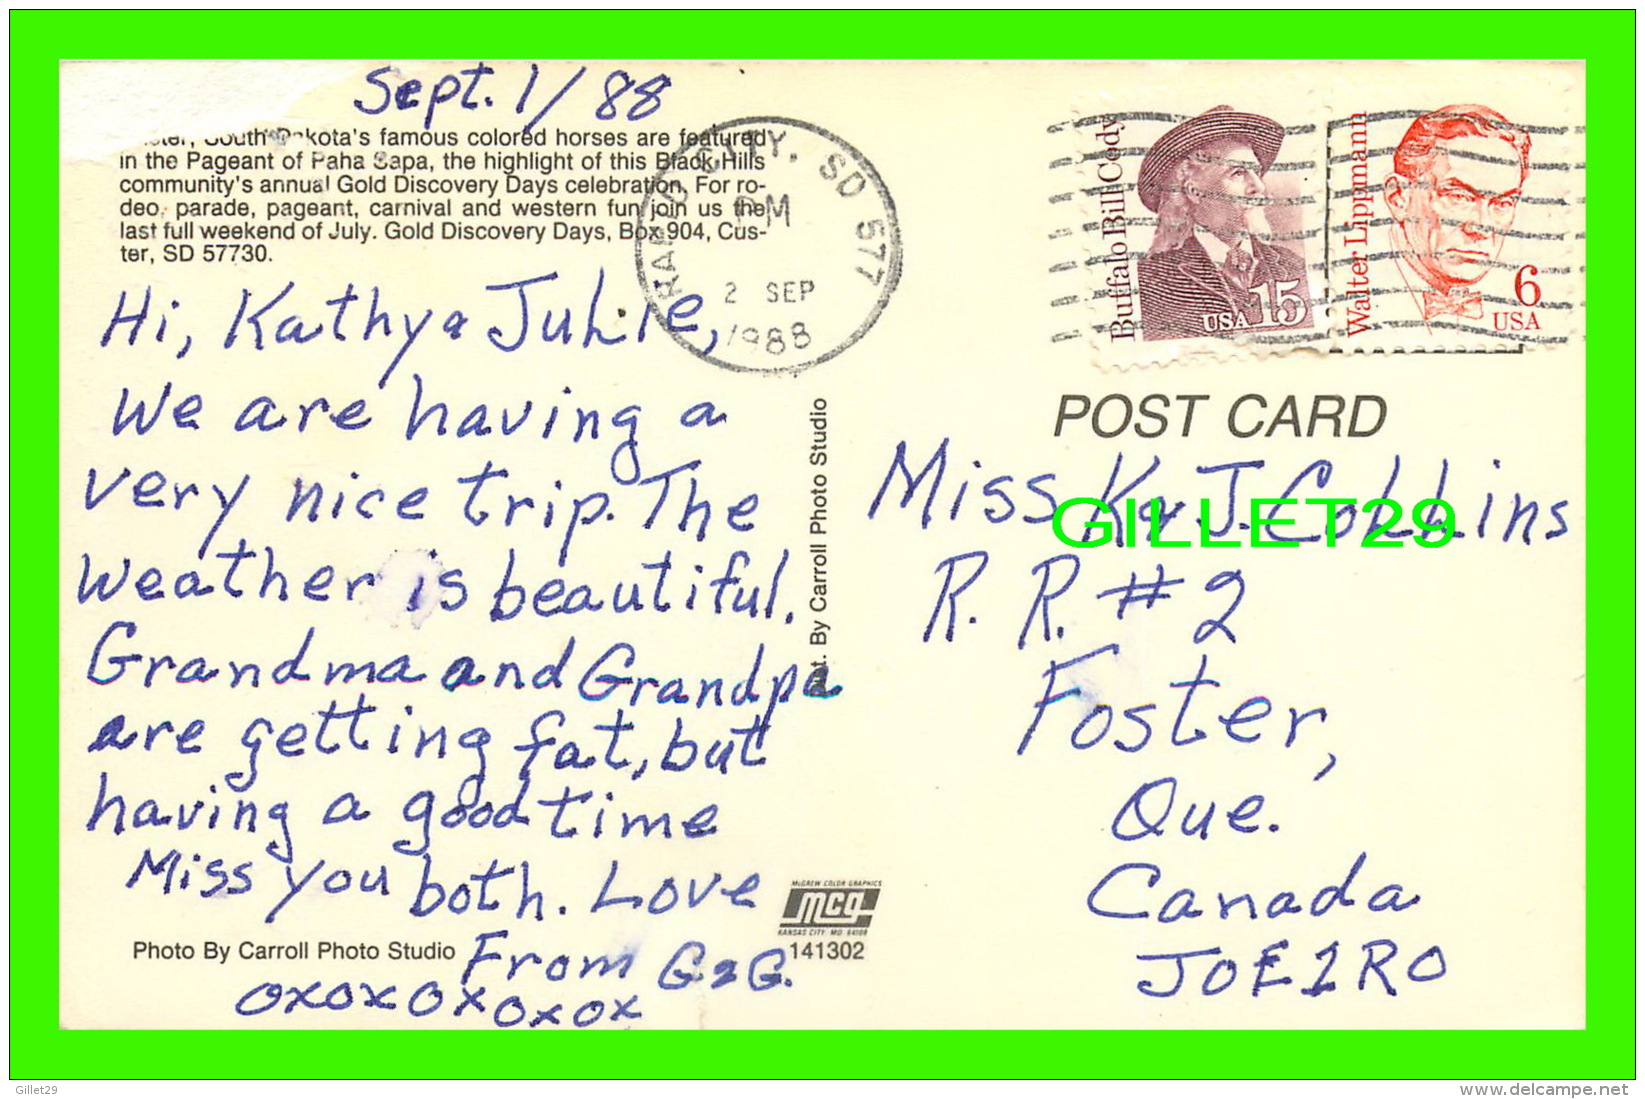 Sept. 1/88
South Dakota's famous colored horses are featured
in the Pageant of Paha Sapa, the highlight of this Black Hills
community's annual Gold Discovery Days celebration. For ro-
deo, parade, pageant, carnival and western fun join us the
last full weekend of July. Gold Discovery Days, Box 904, Cus-
ter, SD 57730.
Hi, Kathy & Julie,
We are having a
very nice trip. The
weather is beautiful.
Grandma and Grandpa
are getting fat, but
having a good time
Miss you both. Love
From G & G.
oxoxoxoxox
Photo By Carroll Photo Studio
CITY, SD 577
PM
2 SEP
1988
By Carroll Photo Studio
McGREW COLOR GRAPHICS
mcg
KANSAS CITY, MO. 64108
141302
Buffalo Bill Cody
USA 15
Walter Lippmann
6
USA
POST CARD
Miss K & J. Collins
R. R. #2
Foster,
Que.
Canada
JOE1RO
GILLET29
Gillet29
www.delcampe.net